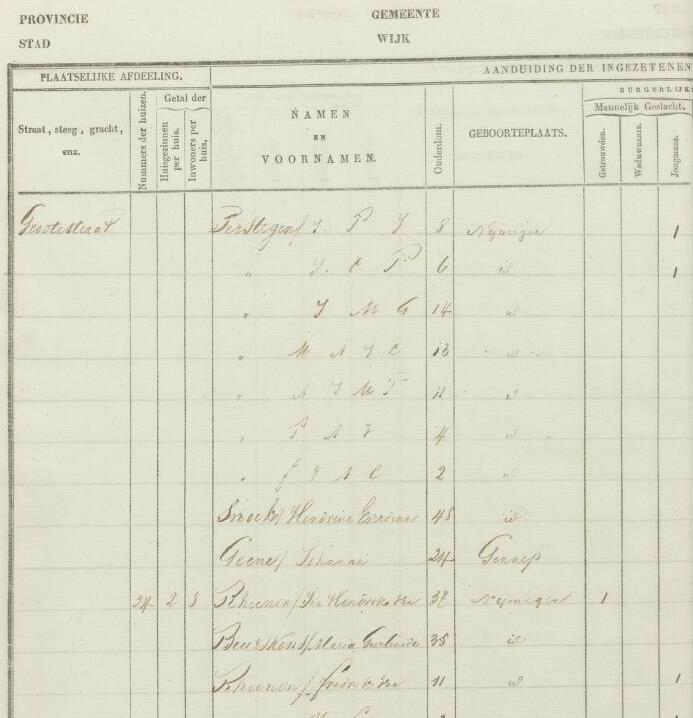 PROVINCIE GEMEENTE
STAD WIJK
PLAATSELIJKE AFDEELING. AANDUIDING DER INGEZETENEN
Straat, steeg, gracht, enz. Nummers der huizen. Getal der Huisgezinnen per huis. Inwoners per huis. NAMEN EN VOORNAMEN. Ouderdom. GEBOORTEPLAATS. BURGERLIJKE
Mannelijk Geslacht.
Getrouwden. Weduwnaars. Jongmans.
Grootestraat Terstegen J. P J 8 Nijmegen 1
" J. C P 6 id 1
" J M G 14 id
" M A J C 13 id
" A J M T 11 id
" P A J 4 id
" J A C 2 id
Snoek / Hendrina 48 id
Geene / Johanna 24 Gennep
24 2 8 Rheenen / Jan Hendrik van 37 Nijmegen 1
Beurskens / Maria 35 id
Rheenen / Fredrik van 11 id 1